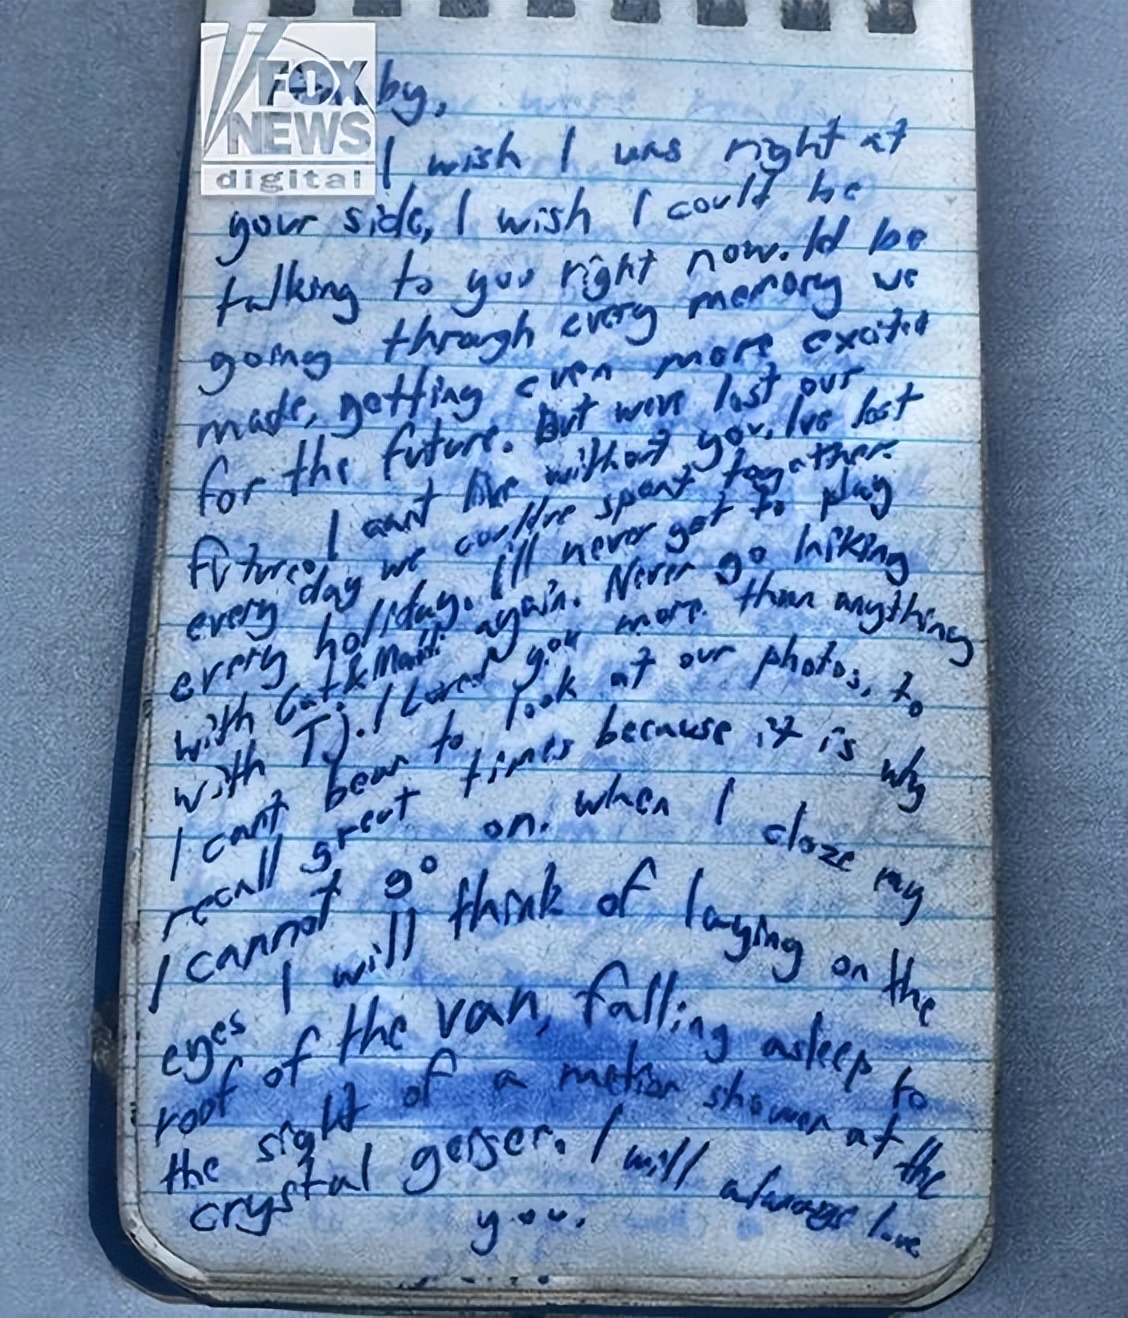 FOX
NEWS
digital
by,
I wish I was right at
your side, I wish I could be
talking to you right now. Id be
going through every memory we
made, getting even more excited
for the future. But weve lost our
future. I cant live without you. Ive lost
every day we couldve spent together.
every holiday. I'll never get to play
with again. Never go hiking
with TJ. I Loved you more than anything
I cant bear to look at our photos, to
recall great times because it is why
I cannot go on. when I cloze my
eyes I will think of laying on the
roof of the van, falling asleep to
the sight of a at the
crystal geiser. I will always love
you.